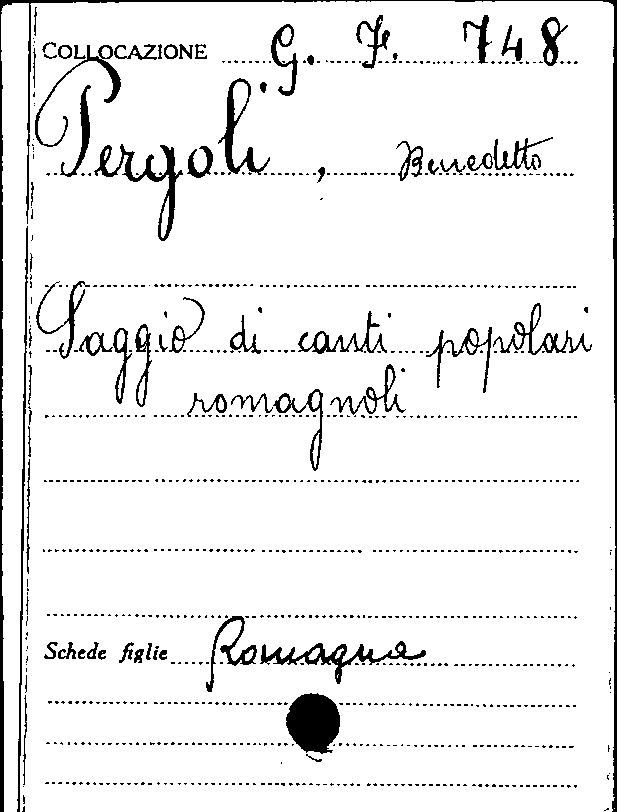 COLLOCAZIONE G. F. 748
Pergoli, Benedetto
Saggio di canti popolari
romagnoli
Schede figlie Romagna